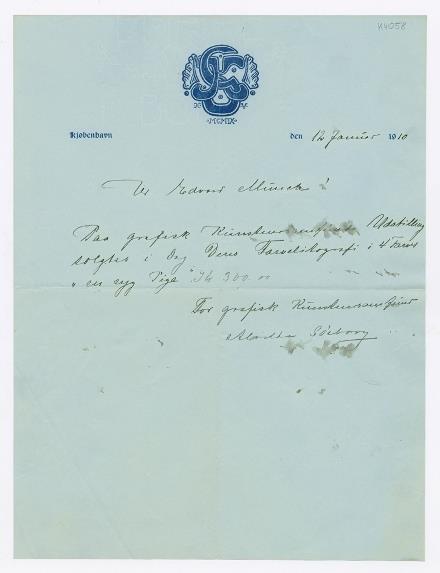 K4058
MCMIX
Kjøbenhavn den 12 Januar 1910
Hr Edvard Munch!
Paa grafisk Kunstner Udstilling
solgtes i Dag Deres Farvelitografi i 4 Farver
"en syg Pige" 300.00
For grafisk Kunstner
Söeborg